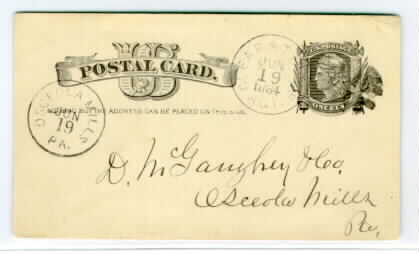 POSTAL CARD.
U.S. POSTAGE
ONE CENT
NOTHING BUT THE ADDRESS CAN BE PLACED ON THIS SIDE.
JUN
19
1884
OSCEOLA MILLS
JUN
19
PA.
D. McGaughey & Co.
Osceola Mills
Pa.